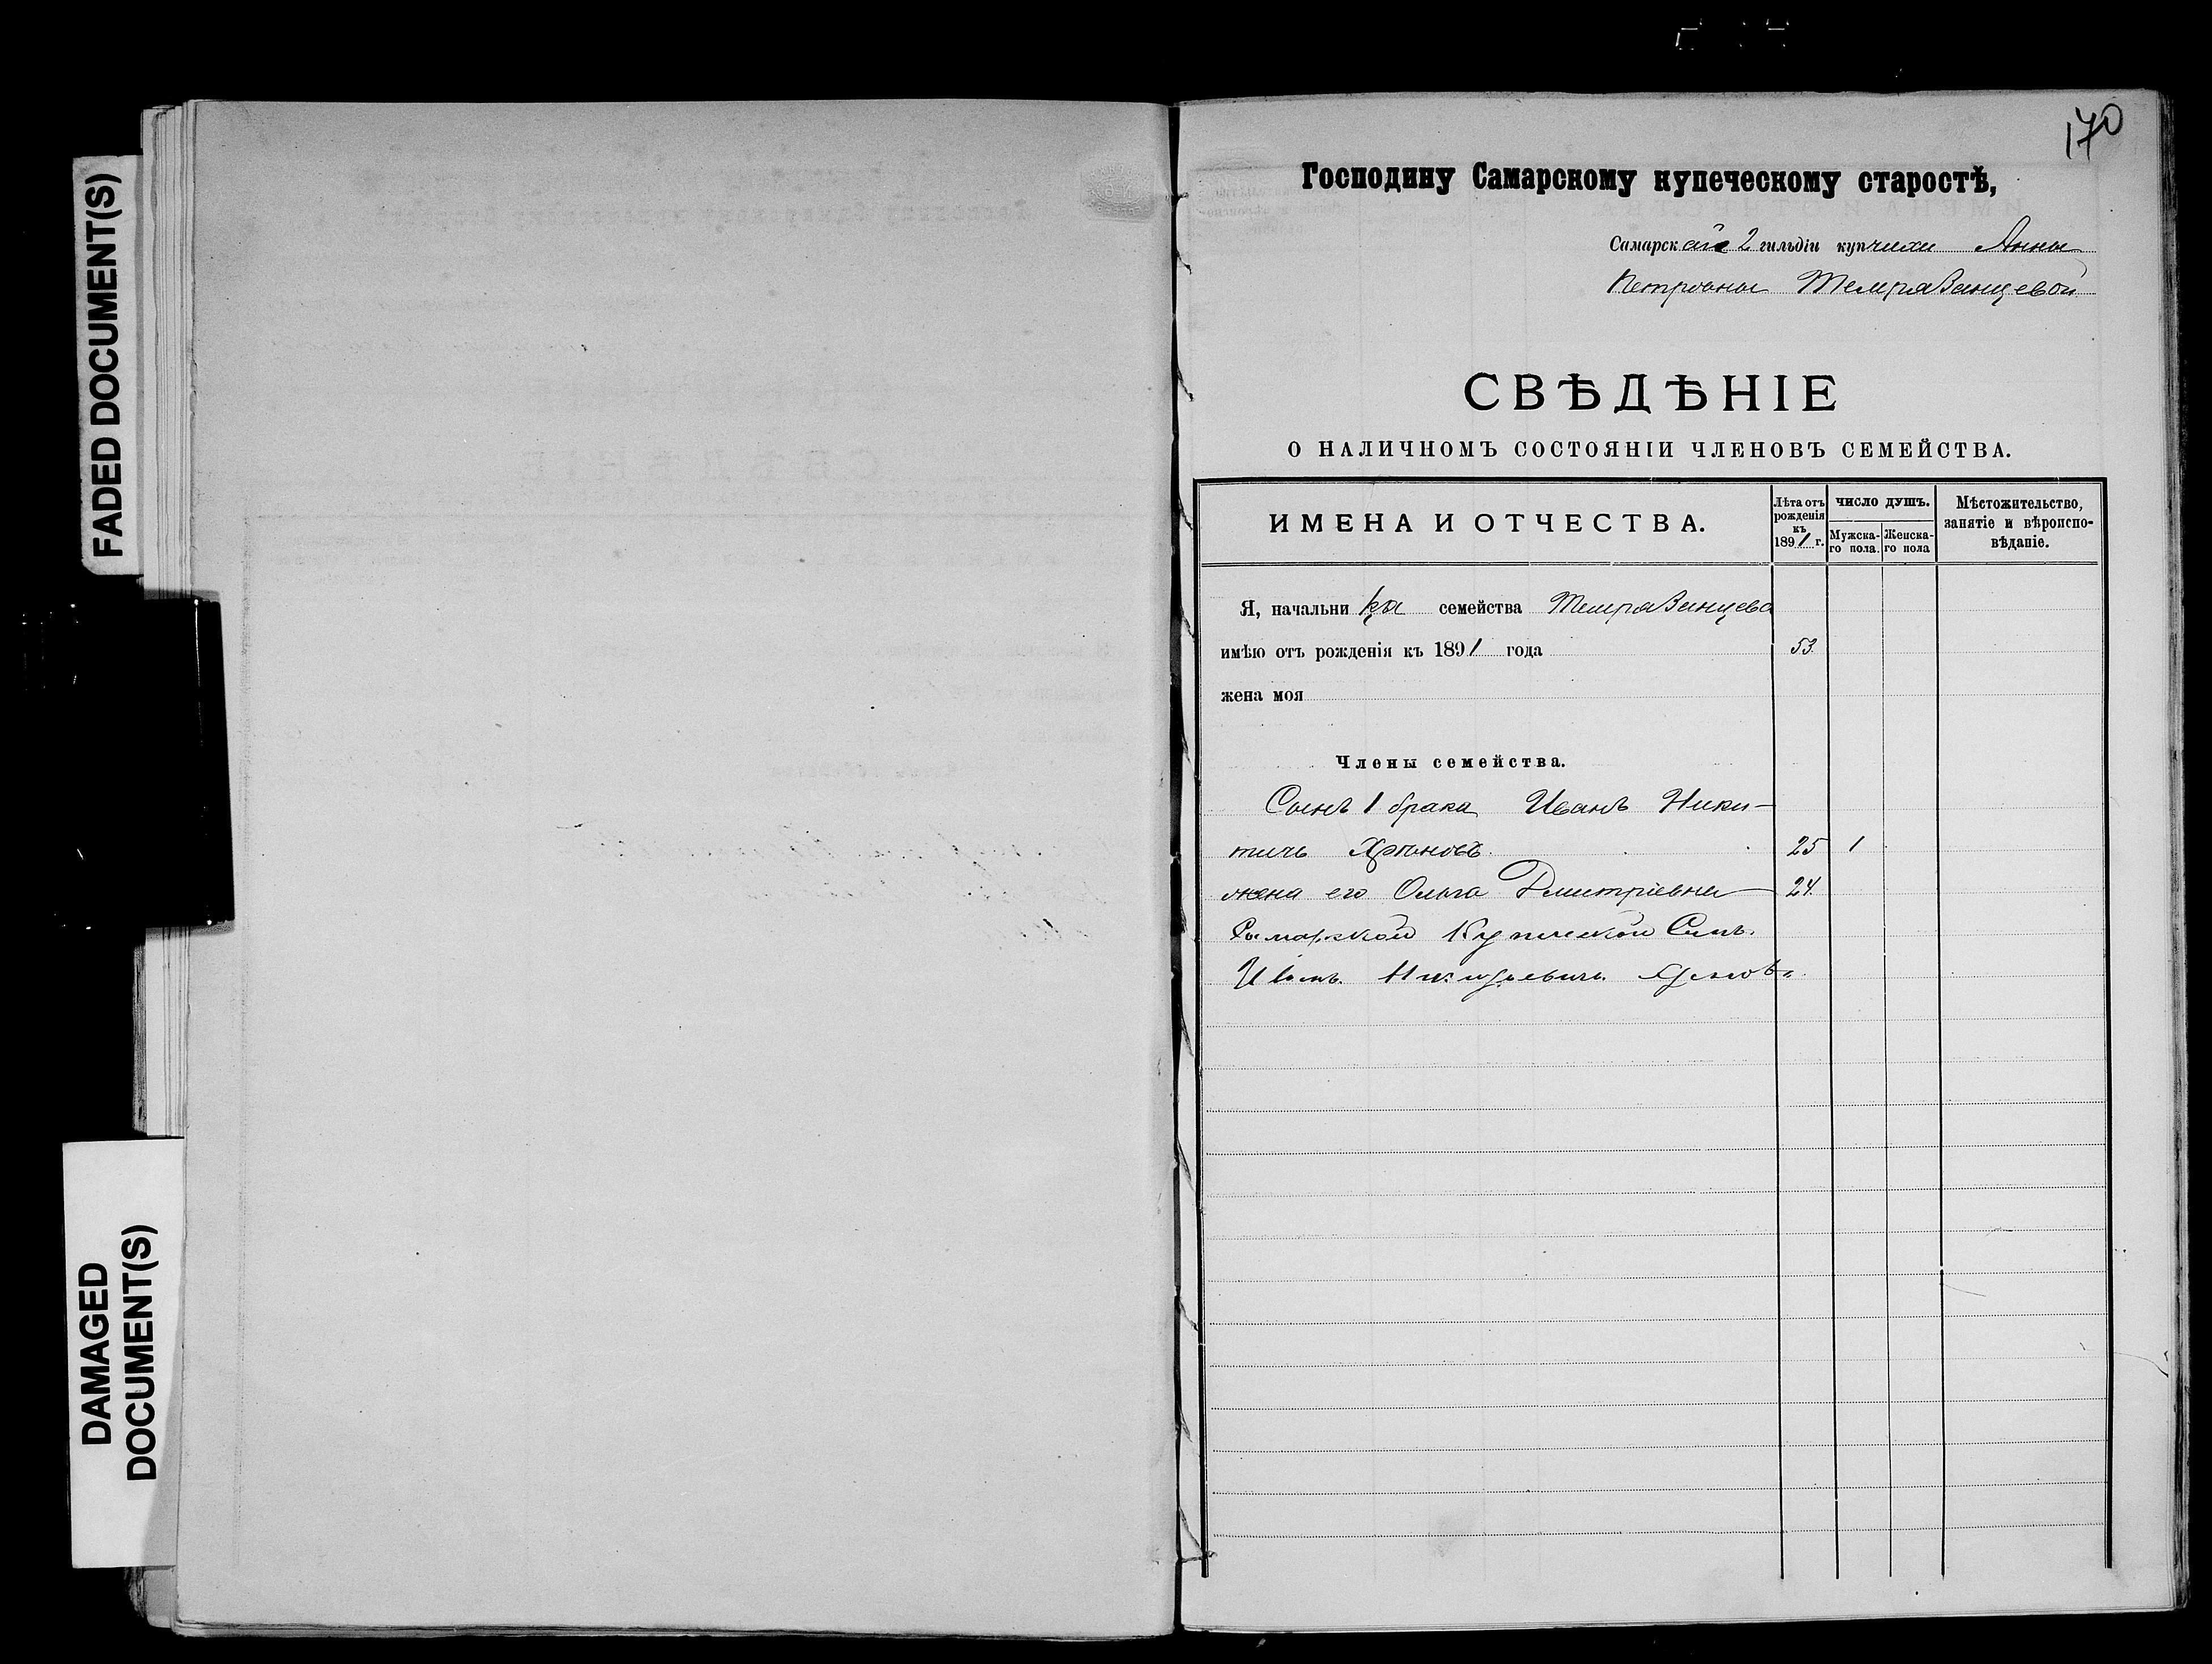 FADED DOCUMENT(S)
DAMAGED
DOCUMENT(S)
170
Господину Самарскому купеческому старостѣ,
Самарской 2 гильдіи купчихи Анны
Петровны Темрязанцевой
СВѢДѢНІЕ
О НАЛИЧНОМЪ СОСТОЯНІИ ЧЛЕНОВЪ СЕМЕЙСТВА.
ИМЕНА И ОТЧЕСТВА.
Лѣта отъ
рожденія
къ
1891 г.
ЧИСЛО ДУШЪ.
Мужска-
го пола.
Женска-
го пола
Мѣстожительство,
занятіе и вѣроиспо-
вѣданіе.
Я, начальница семейства Темрязанцева
имѣю отъ рожденія къ 1891 года 53
жена моя
Члены семейства.
Сынъ 1 брака Иванъ Ники-
тичъ Хрѣновъ 25 1
жена его Ольга Дмитріевна 24
Самарской Купческой Сынъ
Иванъ